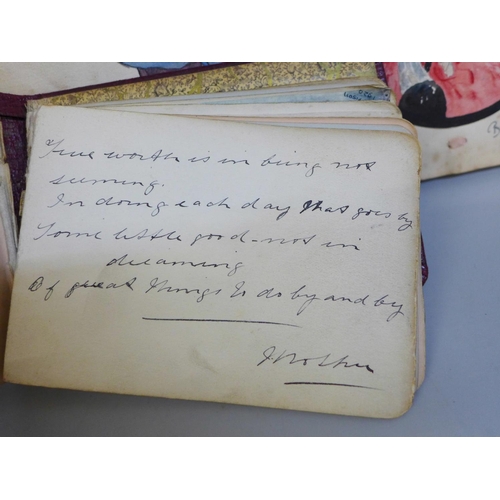 True worth is in being not
seeming.
In doing each day that goes by
Some little good-not in
dreaming
Of great things to do by and by